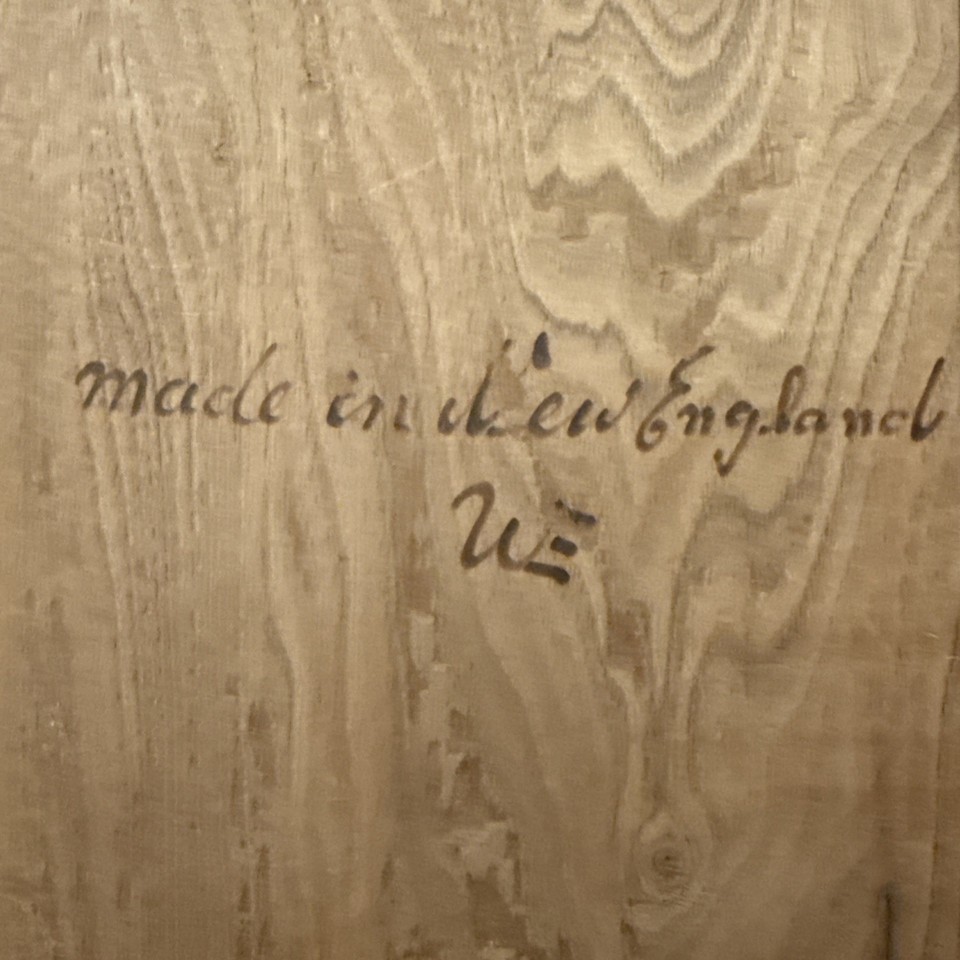 made in New England
WE